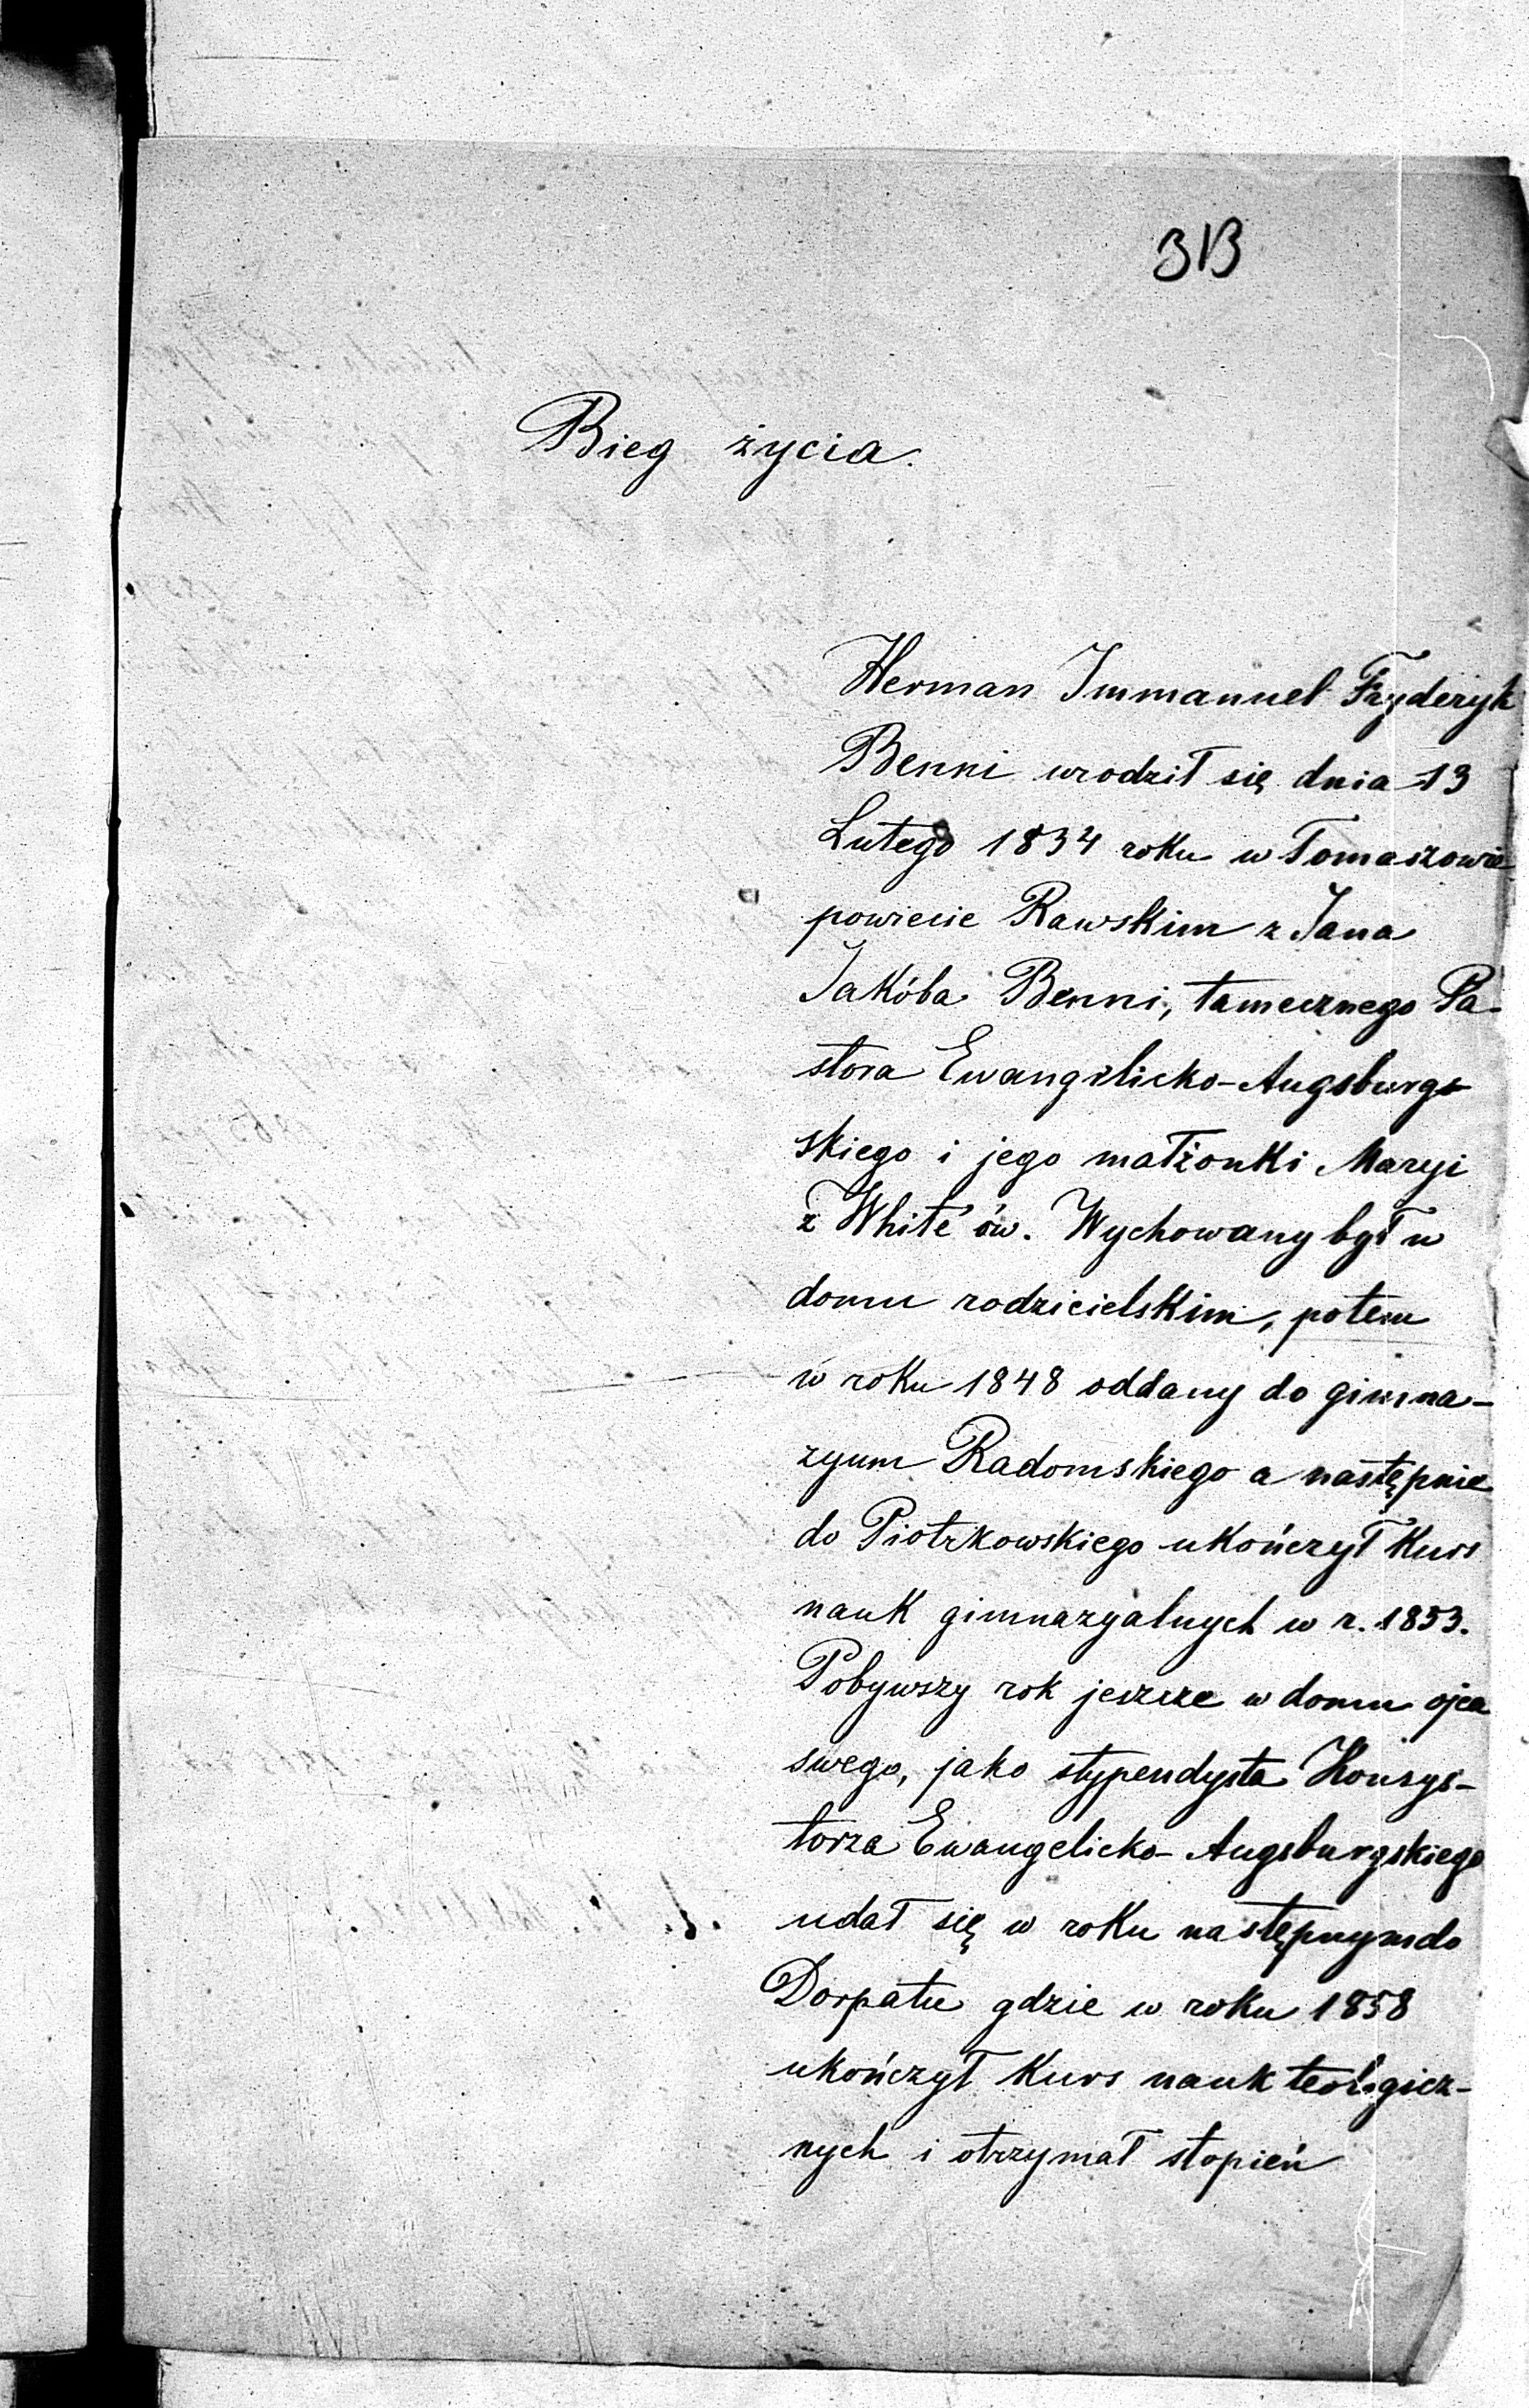 313
Bieg życia.
Herman Immanuel Fryderyk
Benni urodził się dnia 13
Lutego 1834 roku w Tomaszowie
powiecie Rawskim z Jana
Jakóba Benni, tamecznego Pa-
stora Ewangelicko-Augsburg-
skiego i jego małżonki Maryi
z White'ów. Wychowany był w
domu rodzicielskim, potem
w roku 1848 oddany do gimna-
zyum Radomskiego a następnie
do Piotrkowskiego ukończył kurs
nauk gimnazyalnych w r. 1853.
Pobywszy rok jeszcze w domu ojca
swego, jako stypendysta Konsys-
torza Ewangelicko-Augsburgskiego
udał się w roku następnym do
Dorpatu gdzie w roku 1858
ukończył kurs nauk teologicz-
nych i otrzymał stopień